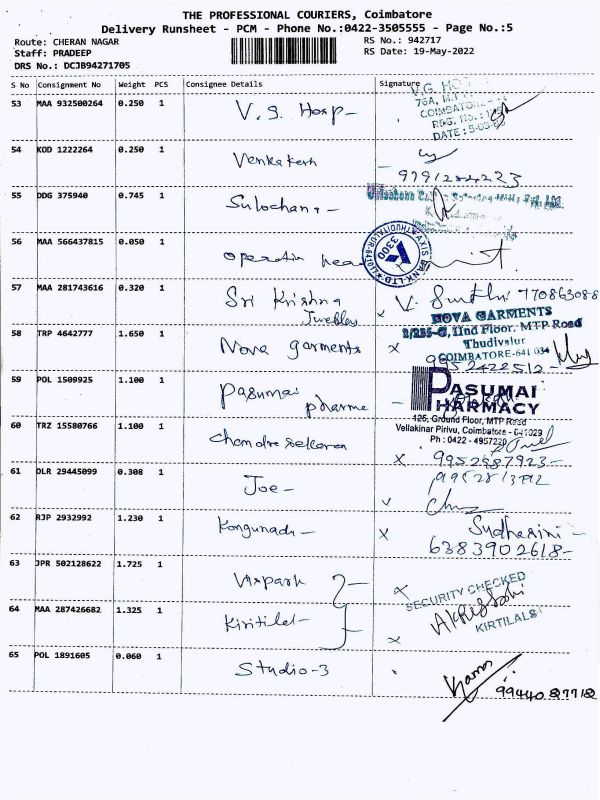 THE PROFESSIONAL COURIERS, Coimbatore
Delivery Runsheet - PCM - Phone No.:0422-3505555 - Page No.:5
Route: CHERAN NAGAR
RS No.: 942717
Staff: PRADEEP
RS Date: 19-May-2022
DRS No.: DCJB94271705
S No Consignment No Weight PCS Consignee Details Signature
V.G. HOS
53 MAA 932500264 0.250 1 V. G. Hosp -
76A, M.T.P
COIMBATORE
REG. No.:
DATE:
54 KOD 1222264 0.250 1 Venkatesh
9791284223
55 DDG 375940 0.745 1 Sulochana -
56 MAA 566437815 0.050 1 operatin head
AXIS BANK LTD THUDIYALUR
3300
57 MAA 281743616 0.320 1 Sri Krishna
Jwellery
770863088
NOVA GARMENTS
58 TRP 4642777 1.650 1 Nova garments x
2/235-C, IInd Floor, MTP Road
Thudivalur
COIMBATORE-641 034
9952422512 -
59 POL 1509925 1.100 1 Pasumai
pharme -
PASUMAI
PHARMACY
126, Ground Floor, MTP Road
Vellakinar Pirivu, Coimbatore - 641029
Ph : 0422 - 4957220
60 TRZ 15580766 1.100 1 Chandrasekaran
x 9952587923 -
61 DLR 29445099 0.308 1 Joe -
62 RJP 2932992 1.230 1 Kongunadu - x Sudharini -
6383902618 -
63 JPR 502128622 1.725 1
SECURITY CHECKED
64 MAA 287426682 1.325 1 Kiritilal -
KIRTILALS
x
65 POL 1891605 0.060 1 Studio - 3
9944087712